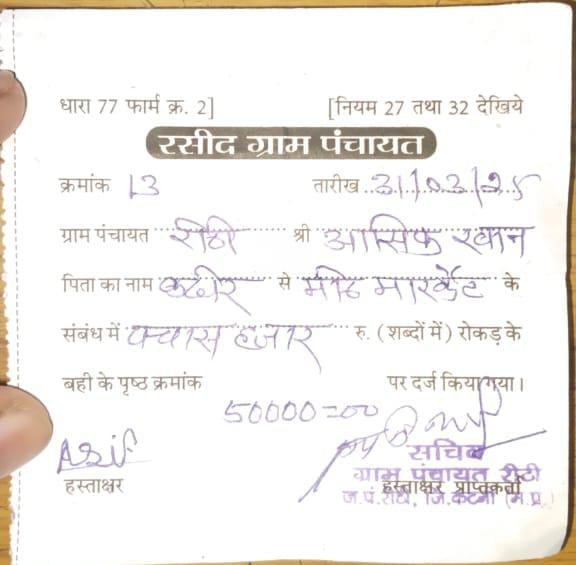 धारा 77 फार्म क्र. 2] [नियम 27 तथा 32 देखिये
रसीद ग्राम पंचायत
क्रमांक 13 तारीख 31/03/25
ग्राम पंचायत रीठी श्री आसिफ खान
पिता का नाम कदीर से मीट मारकेट के
संबंध में पच्चास हजार रु. (शब्दों में) रोकड़ के
बही के पृष्ठ क्रमांक पर दर्ज किया गया।
50000=00
Asif
सचिव
ग्राम पंचायत रीठी
हस्ताक्षर हस्ताक्षर प्राप्तकर्ता
ज.पं. रीठी, जि. कटनी (म.प्र.)